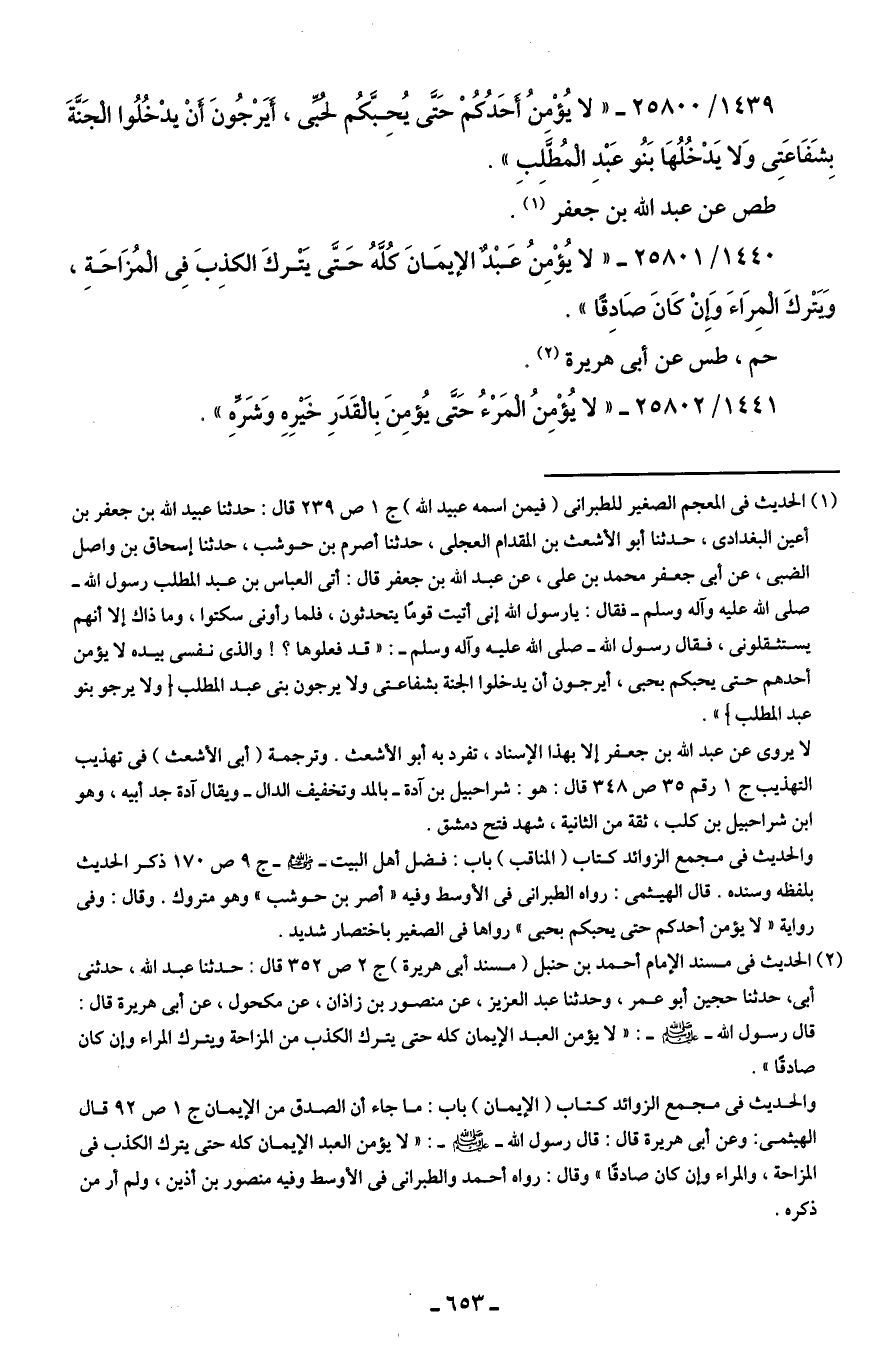 ٢٥٨٠٠/١٤٣٩ ـ « لا يُؤْمِنُ أَحَدُكُمْ حَتَّى يُحِبَّكُم لحُبِّى ، أَيَرْجُونَ أَنْ يدْخُلُوا الجَنَّةَ
بِشَفَاعَتِى وَلا يَدْخُلُهَا بَنُو عَبْدِ المُطَّلِبِ » .
طص عن عبد الله بن جعفر (١) .
٢٥٨٠١/١٤٤٠ ـ « لا يُؤْمِنُ عَبْدٌ الإيمَانَ كُلَّهُ حَتَّى يَتْركَ الكذبَ فِى المُزَاحَةِ ،
وَيَتْركَ المِرَاءَ وَإِنْ كَانَ صَادِقًا » .
حم ، طس عن أبى هريرة (٢) .
٢٥٨٠٢/١٤٤١ ـ « لا يُؤْمِنُ المَرْءُ حَتَّى يُؤمِنَ بِالْقَدَرِ خَيْرِهِ وَشَرِّه » .
(١) الحديث فى المعجم الصغير للطبرانى ( فيمن اسمه عبيد الله ) ج ١ ص ٢٣٩ قال : حدثنا عبيد الله بن جعفر بن
أعين البغدادى ، حدثنا أبو الأشعث بن المقدام العجلى ، حدثنا أصرم بن حوشب ، حدثنا إسحاق بن واصل
الضبى ، عن أبى جعفر محمد بن على ، عن عبد الله بن جعفر قال : أتى العباس بن عبد المطلب رسول الله ـ
صلى الله عليه وآله وسلم ـ فقال : يارسول الله إنى أتيت قومًا يتحدثون ، فلما رأونى سكتوا ، وما ذاك إلا أنهم
يستثقلونى ، فقال رسول الله ـ صلى الله عليه وآله وسلم ـ : « قد فعلوها ؟ ! والذى نفسى بيده لا يؤمن
أحدهم حتى يحبكم بحبى ، أيرجون أن يدخلوا الجنة بشفاعتى ولا يرجون بنى عبد المطلب { ولا يرجو بنو
عبد المطلب } » .
لا يروى عن عبد الله بن جعفر إلا بهذا الإسناد ، تفرد به أبو الأشعث . وترجمة ( أبى الأشعث ) فى تهذيب
التهذيب ج ١ رقم ٣٥ ص ٣٤٨ قال : هو : شراحبيل بن آدة ـ بالمد وتخفيف الدال ـ ويقال آدة جد أبيه ، وهو
ابن شراحبيل بن كلب ، ثقة من الثانية ، شهد فتح دمشق .
والحديث فى مجمع الزوائد كتاب ( المناقب ) باب : فضل أهل البيت ـ رضي الله عنهم ـ ج ٩ ص ١٧٠ ذكر الحديث
بلفظه وسنده . قال الهيثمى : رواه الطبرانى فى الأوسط وفيه « أصر بن حوشب » وهو متروك . وقال : وفى
رواية « لا يؤمن أحدكم حتى يحبكم بحبى » رواها فى الصغير باختصار شديد .
(٢) الحديث فى مسند الإمام أحمد بن حنبل ( مسند أبى هريرة ) ج ٢ ص ٣٥٢ قال : حدثنا عبد الله ، حدثنى
أبى، حدثنا حجين أبو عمر ، وحدثنا عبد العزيز ، عن منصور بن زاذان ، عن مكحول ، عن أبى هريرة قال :
قال رسول الله ـ ﷺ ـ : « لا يؤمن العبد الإيمان كله حتى يترك الكذب من المزاحة ويترك المراء وإن كان
صادقًا » .
والحديث فى مجمع الزوائد كتاب ( الإيمان ) باب : ما جاء أن الصدق من الإيمان ج ١ ص ٩٢ قال
الهيثمى: وعن أبى هريرة قال : قال رسول الله ـ ﷺ ـ : « لا يؤمن العبد الإيمان كله حتى يترك الكذب فى
المزاحة ، والمراء وإن كان صادقًا » وقال : رواه أحمد والطبرانى فى الأوسط وفيه منصور بن أذين ، ولم أر من
ذكره .
ـ ٦٥٣ ـ